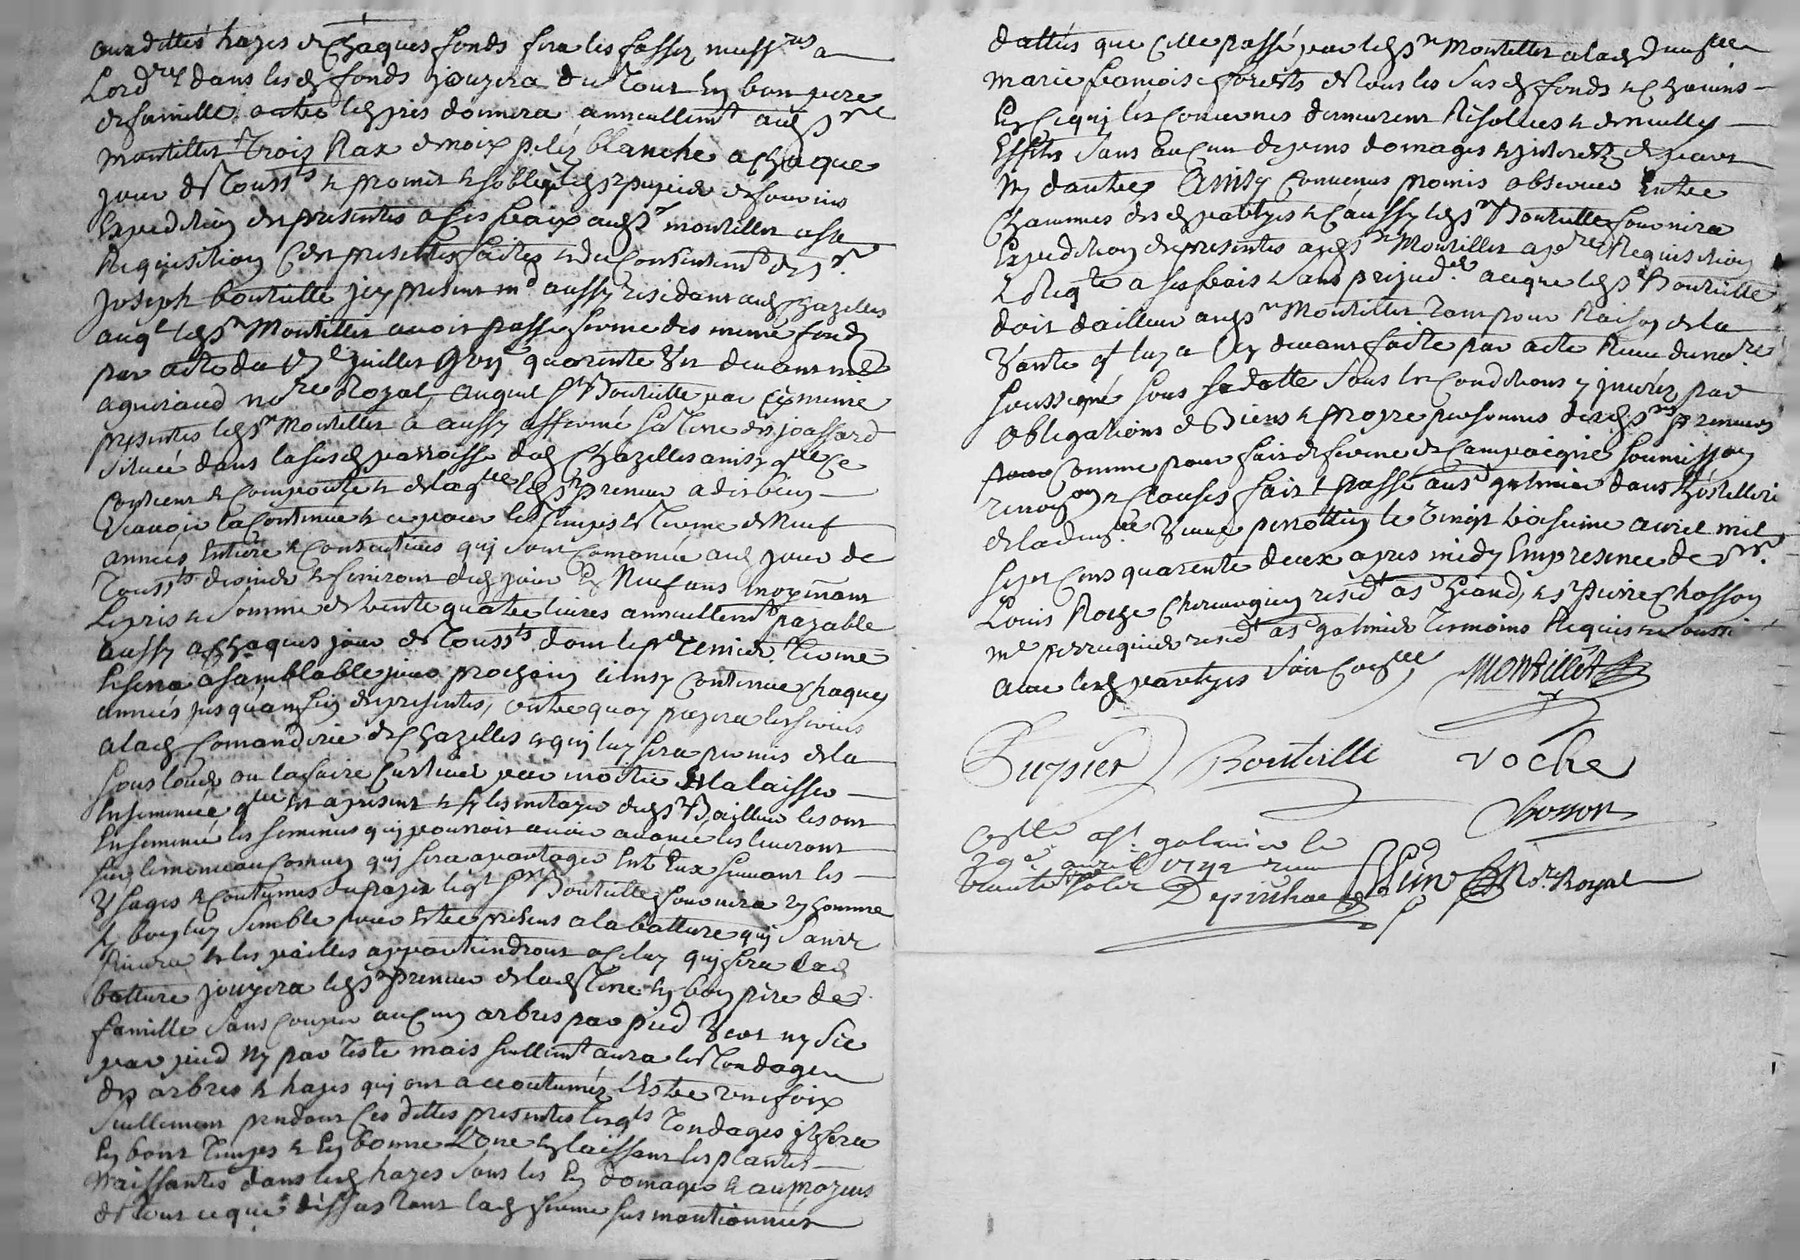 aux dittes hayes de chaques fonds fera les fossez necess.res a
Lord.re & dans lesd fonds jouyra du tout en bon pere
de famille outre led pris donnera annuellem.t aud s.r
Montillet Trois Ras de noix pelez blanche a chaque
jour de Touss.ts & promit &
Expedition des presentes a ses fraix aud s.r montillet a sa
Requisition Ces presentes faites & du Consentem.t de s.r
Joseph bouteille jcy present m.d aussy residant aud Chazelles
auq.l led s.r Montillet avoit passé ferme des meme fonds
par acte du juillet quarente devant m.e
agniraud no.re Royal, auquel s.r Bouteille par ces meme
presentes led s.r Montillet a aussy affermé sa Terre des joassard
Située dans la susd parroisse dud Chazelles ainsy q.lle se
Contient & Comporte & de laq.lle led s.r preneur a dit bien
scavoir la Continue & ce pour le Temps & Terme de Neuf
années Entiere & Consecutives quj sont Comancée aud jour de
Touss.ts dernier & finiront aud jour En Neuf ans moyenant
Le pris & Somme de trente quatre livres annuellem.t payable
aussy a Chaques jour de Touss.ts dont le p.r Terme
& sera a samblable jour prochain & ainsy Continue Chaques
années jusqu'à la fin des presentes, outre quoy payera les servis
a lad Comanderie de Chazelles & quj luy sera permis de la
sous louer ou la faire Cultiver par moitié & la laisser
Ensemencée q.lle est a present & sy les metayer dud s.r Bailleur les ont
Ensemencé les semences quj pourroit avoir avancé les leveront
sur le monceau Comun quj sera apartager Entr Eux suivant les
Usages & Coutumes du pays led s.r Bouteille fournira un homme
sy bon luy semble pour Estre present a la batture quj sauve
& les pailles appartiendront a celuy quj fera lad
batture jouyra led s.r preneur de lad Terre en bon pere de
famille sans Couper aucuns arbres par pied Vert ny Sec
par pied Ny par Teste mais seullem.t aura les Tondages
des arbres & hayes quj ont accoutumez Estre une fois
seullement pendant ces dittes presentes lesq.ls Tondages jl fera
En bons Temps & En bonne Lune & laissant les plantes
Naissantes dans lesd hayes sans les En domager & au moyens
de tout ce que dessus tant lad ferme sus mantionnéés
dattés que Celle passé par led s.r Montillet a lad dem.lle
Marie francoise forests de tous les Susd fonds
En Cequj les Concernes demeurent Résolues & de nulles
Effets sans aucun depens domages & jnterests de part
Ny dautres Ainsy Convenus promis observer Entre
Chacunnes des d partyes & Aussy led s.r Bouteille fournira
Expedition des presentes aud s.r Montillet a p.re Requisition
a ses frais & sans prejud.ce a ceque led s.r Bouteille
doit dailleur aud s.r Montillet Tant pour Raison de la
Vante q.l luy a Cy devant faite par acte Receu du no.re
soussigné sous sa datte sous les Conditions y jnserés par
obligations de Biens & propre personnes desd s.rs preneurs
Comme pour fait de ferme de Campaigne soumission
renon.on & clauses fait & passé a s.t galmier dans Lhostellerie
de la dem.lle Veuve perrottin le Vingt troisieme avril mil
sept Cens quarente deux apres midy En presence de s.r
Louis Roche Chirurgien resid.t as.t heand, & s.r pierre Chosson
m.e perruquier resid.t as.t galmier Tesmoins Requis & soussi
avec lesd partyes
Montillet
Dupuier Bouteille Roche
Chosson
Cont.lle a s.t galmier le
29.e avril 1742 receu
No.re Royal